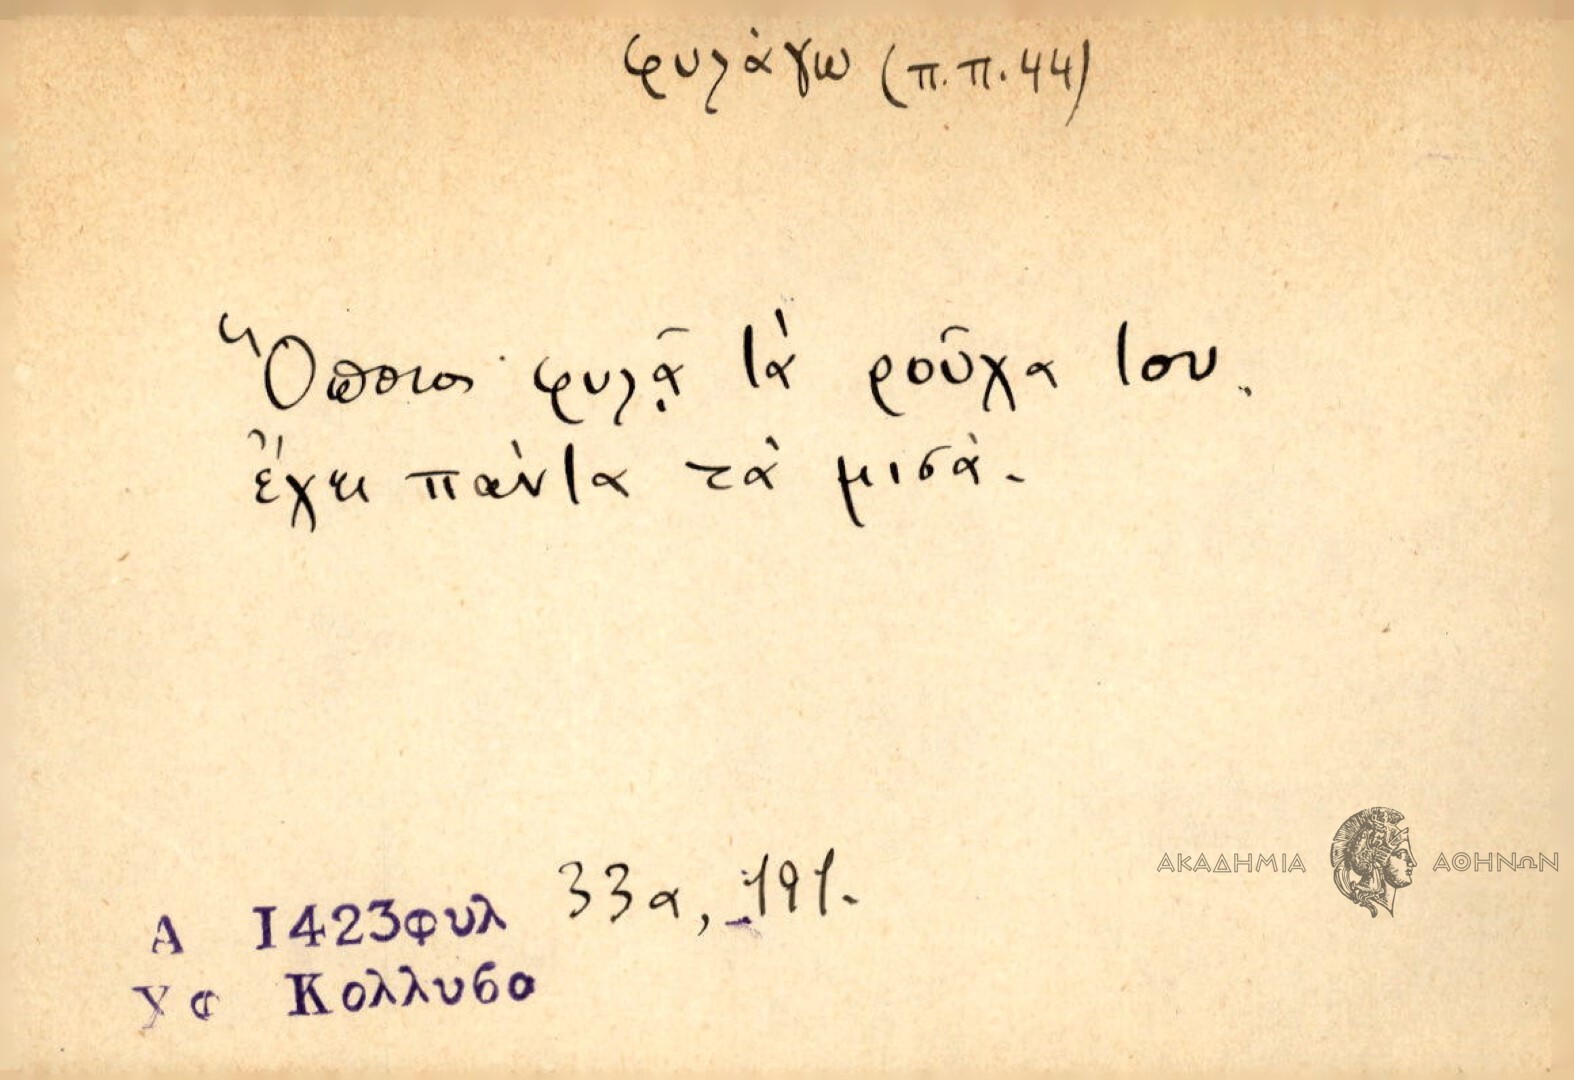 φυλάγω (π.π. 44)
Ὅποιος φυλᾷ τὰ ροῦχα του
ἔχει πάντα τὰ μισά.
Α 1423φυλ 33α, 191.
Κολλυβα
ΑΚΑΔΗΜΙΑ ΑΘΗΝΩΝ